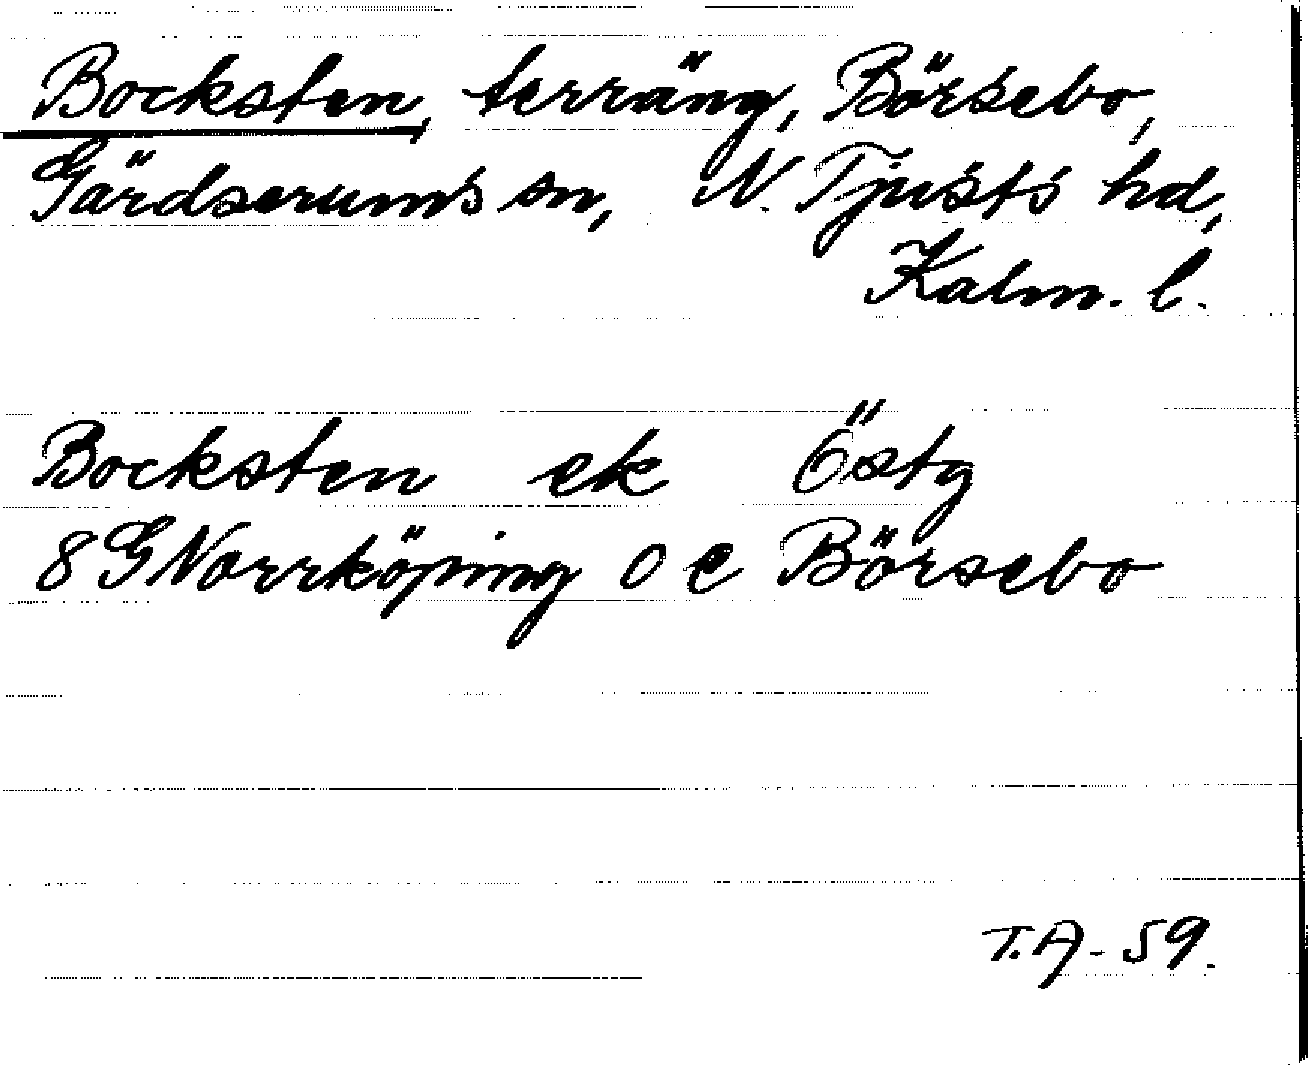 Bocksten, terräng, Börsebo,
Gärdserums sn, N. Tjusts hd,
Kalm. l.
Bocksten ek Östg
8 G Norrköping 0 e Börsebo
T.A-59.